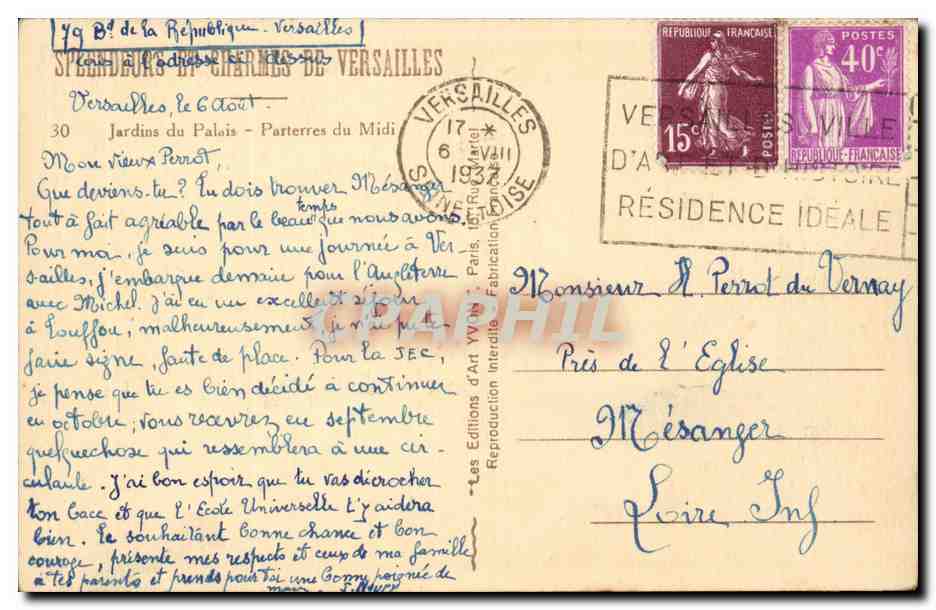 79 Bd de la République - Versailles
écris à l'adresse ci dessus
SPLENDEURS ET CHARMES DE VERSAILLES
Versailles, le 6 Août.
30 Jardins du Palais - Parterres du Midi
Mon vieux Perrot,
Que deviens-tu? Tu dois trouver Mésanger
tout à fait agréable par le beau temps que nous avons.
Pour moi, je suis pour une journée à Ver-
sailles, j'embarque demain pour l'Angleterre
avec Michel. J'ai eu un excellent séjour
à ; malheureusement je n'ai pu te
faire signe, faute de place. Pour la JEC,
je pense que tu es bien décidé à continuer
en octobre; vous recevrez en septembre
quelquechose qui ressemblera à une cir-
culaire. J'ai bon espoir que tu vas décrocher
ton bacc et que l'École Universelle t'y aidera
bien. Te souhaitant bonne chance et bon
courage, présente mes respects et ceux de ma famille
à tes parents et prends pour toi une bonne poignée de
main.
"Les Editions d'Art YVON". Paris, 15, Rue Martel
Reproduction Interdite. Fabrication Française
VERSAILLES
17 *
6 VIII
1937
SEINE-ET-OISE
RÉPUBLIQUE FRANÇAISE
15c
POSTES
POSTES
40c
RÉPUBLIQUE-FRANÇAISE
VERSAILLES VILLE
D'ART ET D'HISTOIRE
RÉSIDENCE IDÉALE
Monsieur H. Perrot du Vernay
Près de l'Eglise
Mésanger
Loire Inf
CPAPHIL